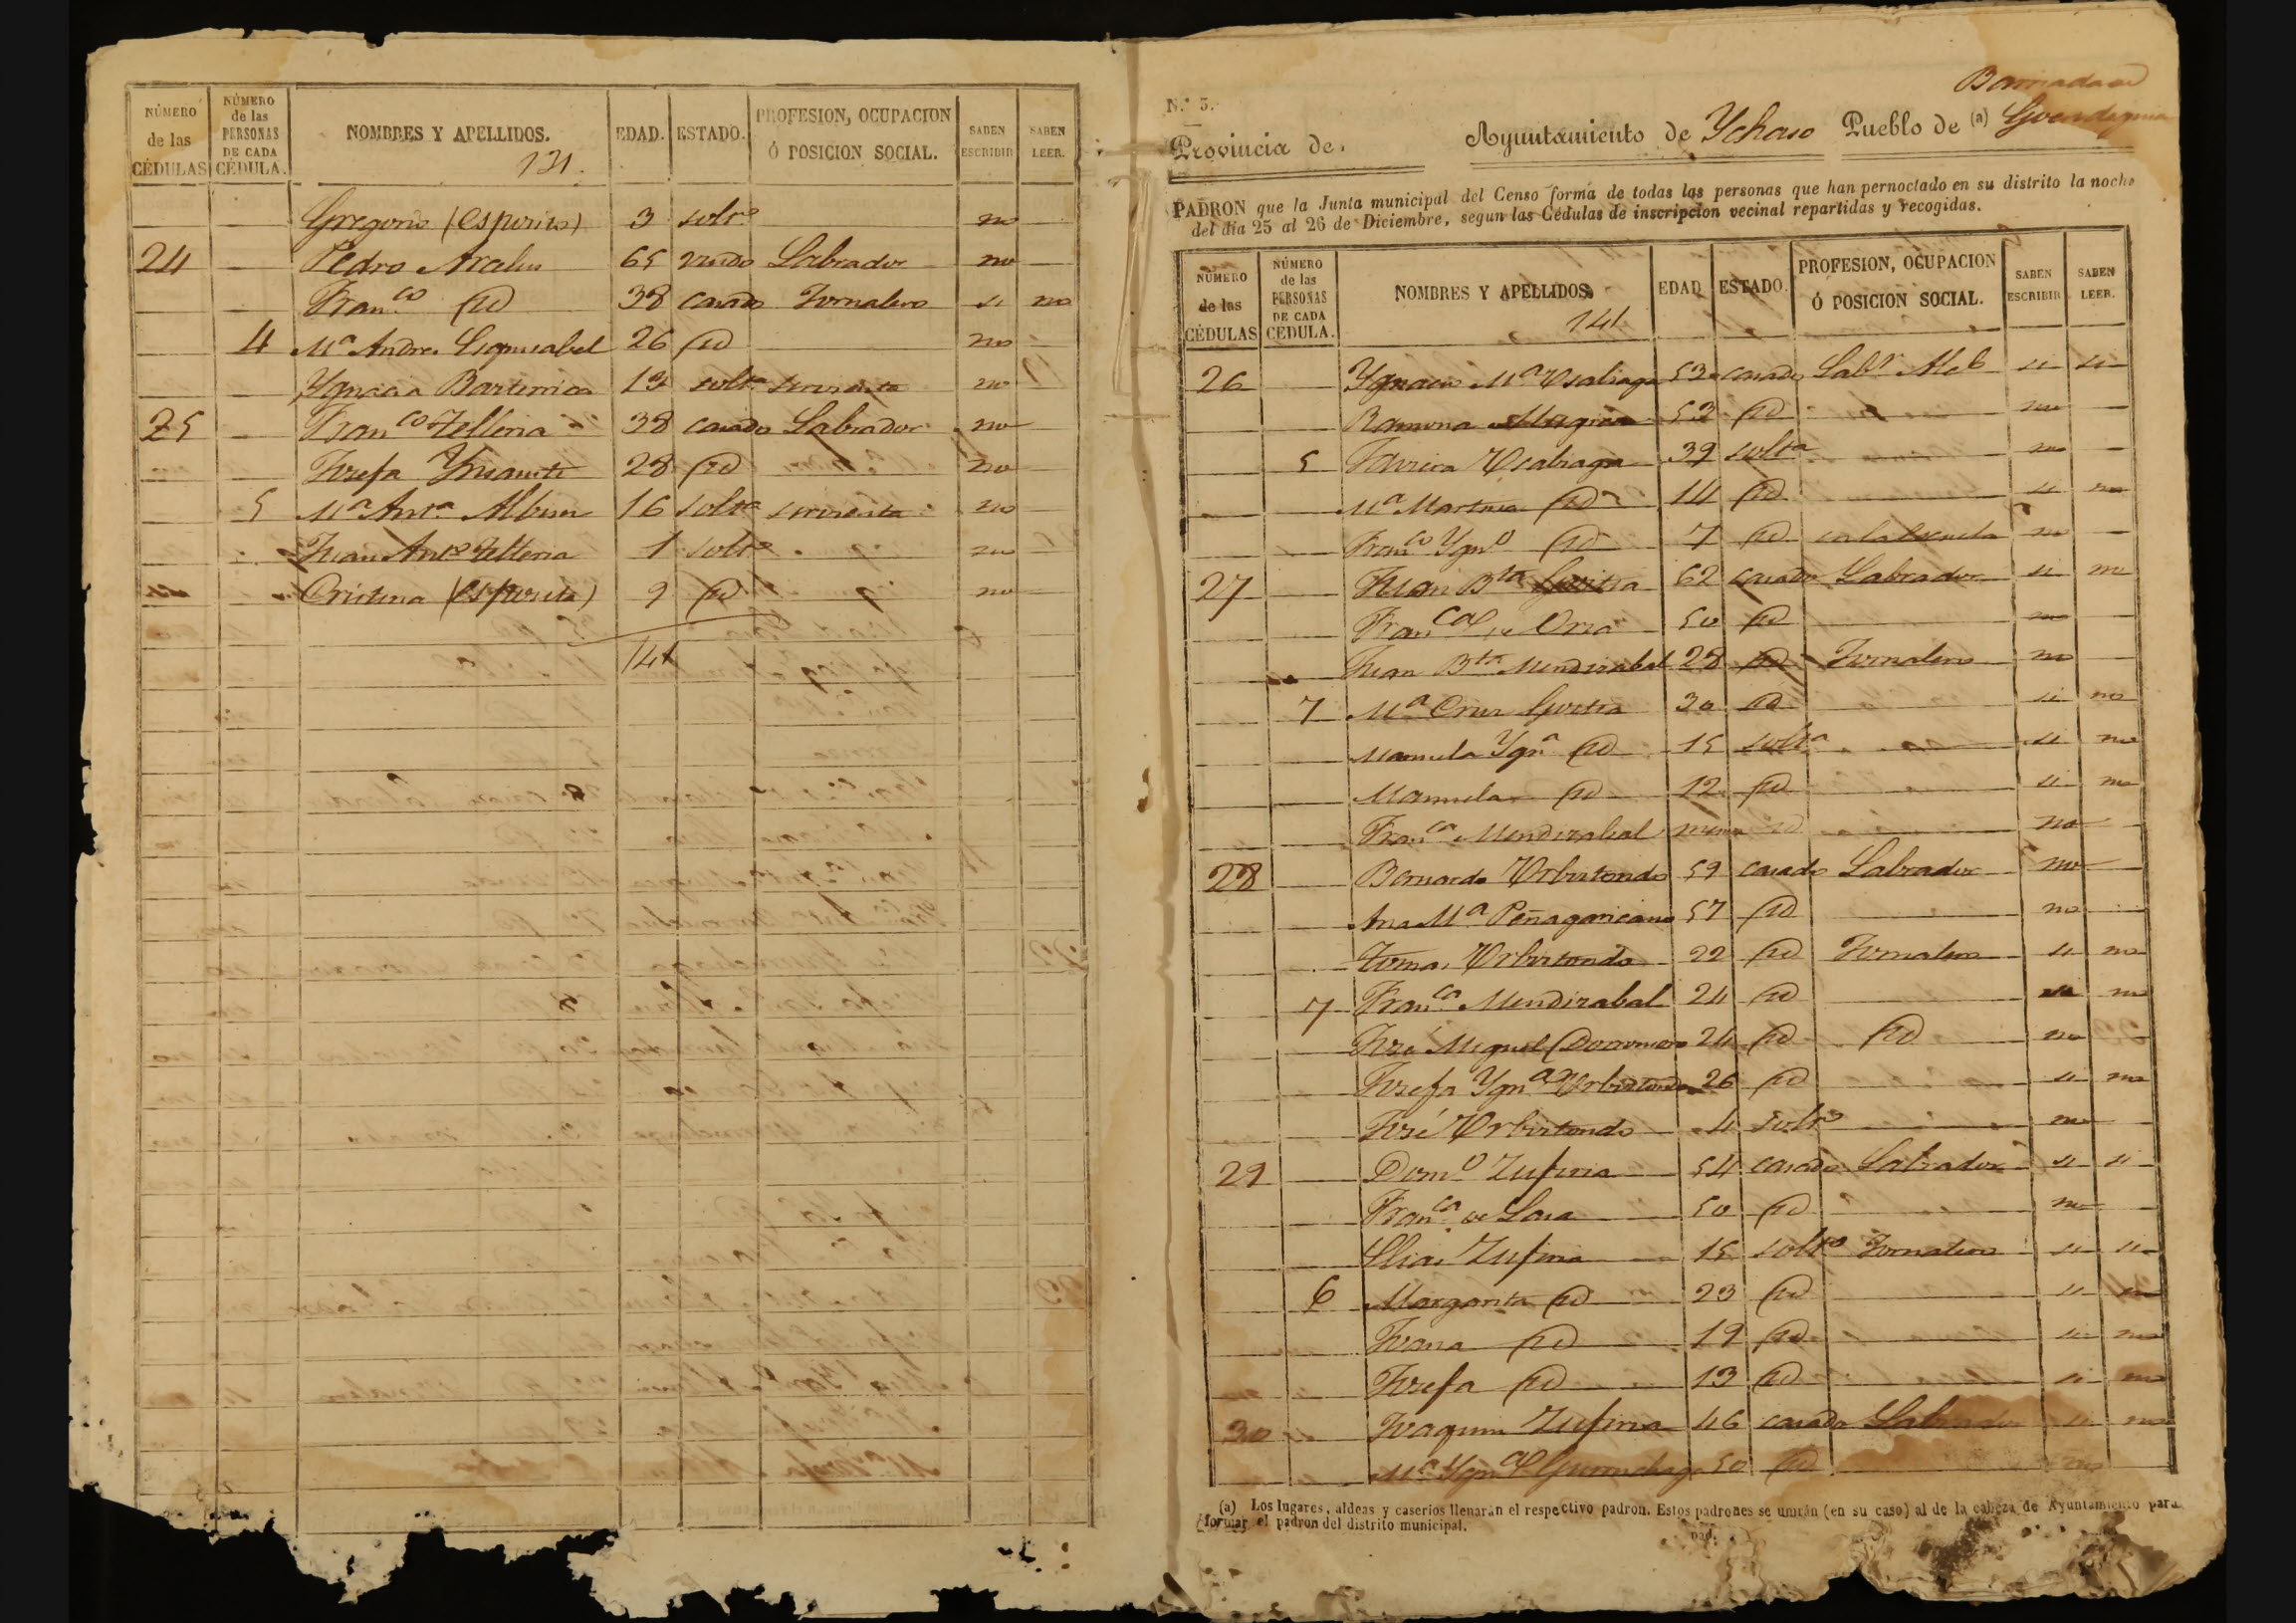 NÚMERO de las CÉDULAS NÚMERO de las PERSONAS DE CADA CÉDULA. NOMBRES Y APELLIDOS. EDAD. ESTADO. PROFESION, OCUPACION Ó POSICION SOCIAL. SABEN ESCRIBIR SABEN LEER.
131.
Gregorio (Esposito) 3 solto no
24 Pedro 65 viudo Labrador no
Franco id 38 casado Jornalero si no
4 Ma Andrea 26 id no
Ygnacia 13 solta sirvienta no
25 Franco Telleria 38 casado Labrador no
Josefa 28 id no
5 Ma Anta Albisu 16 solta sirvienta no
Juan Anto Telleria 1 solto no
Cristina (Esposita) 9 id no
141
N.º 5.
Provincia de Ayuntamiento de Ychaso Pueblo de (a) Barriada de
PADRON que la Junta municipal del Censo forma de todas las personas que han pernoctado en su distrito la noche
del dia 25 al 26 de Diciembre, segun las Cédulas de inscripcion vecinal repartidas y recogidas.
NÚMERO de las CÉDULAS NÚMERO de las PERSONAS DE CADA CEDULA. NOMBRES Y APELLIDOS. EDAD ESTADO. PROFESION, OCUPACION Ó POSICION SOCIAL. SABEN ESCRIBIR SABEN LEER.
141
26 Ygnacio Ma Usabiaga 53 casado Labr si si
Ramona 53 id no
5 Usabiaga 39 solta no
Ma Martina id 14 id si no
Franco Ygno id 7 id en la escuela no
27 Juan Bta Goitia 62 casado Labrador si no
Franca de Oria 50 id no
Juan Bta Mendizabal 28 id Jornalero no
7 Ma Cruz Goitia 30 id si no
Manuela Ygna id 15 solta si no
Manuela id 12 id si no
Franca Mendizabal id no
28 Bernardo Urbistondo 59 casado Labrador no
Ana Ma Peñagaricano 57 id no
Tomas Urbistondo 22 id Jornalero si no
7 Franca Mendizabal 24 id no
José Miguel 24 id id no
Josefa Ygna Urbistondo 26 id si no
José Urbistondo 4 solto no
29 Domo Zufiria 54 casado Labrador si si
Franca de Lasa 50 id no
Elias Zufiria 15 solto Jornalero si si
6 Margarita id 23 id si
Juana id 19 id si no
Josefa id 13 id si no
30 Joaquin Zufiria 46 casado Labrador si no
Ma Ygna 50 id no
(a) Los lugares, aldeas y caseríos llenarán el respectivo padron. Estos padrones se unirán (en su caso) al de la cabeza de Ayuntamiento para
formar el padron del distrito municipal.